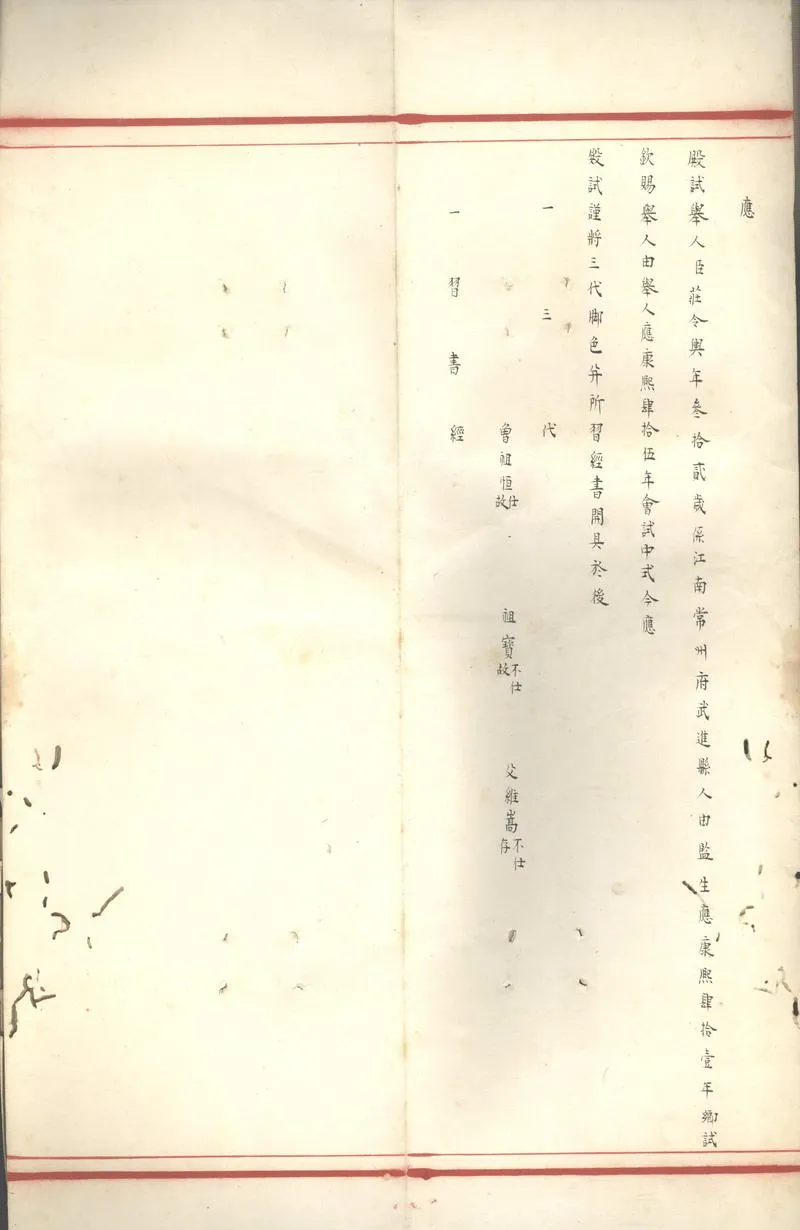 應
殿試舉人臣莊令輿年叁拾貳歲係江南常州府武進縣人由監生應康熙肆拾壹年鄉試
欽賜舉人由舉人應康熙肆拾伍年會試中式今應
殿試謹將三代脚色并所習經書開具於後
一三代
曾祖恒仕故 祖寶不仕故 父維嵩不仕存
一習書經